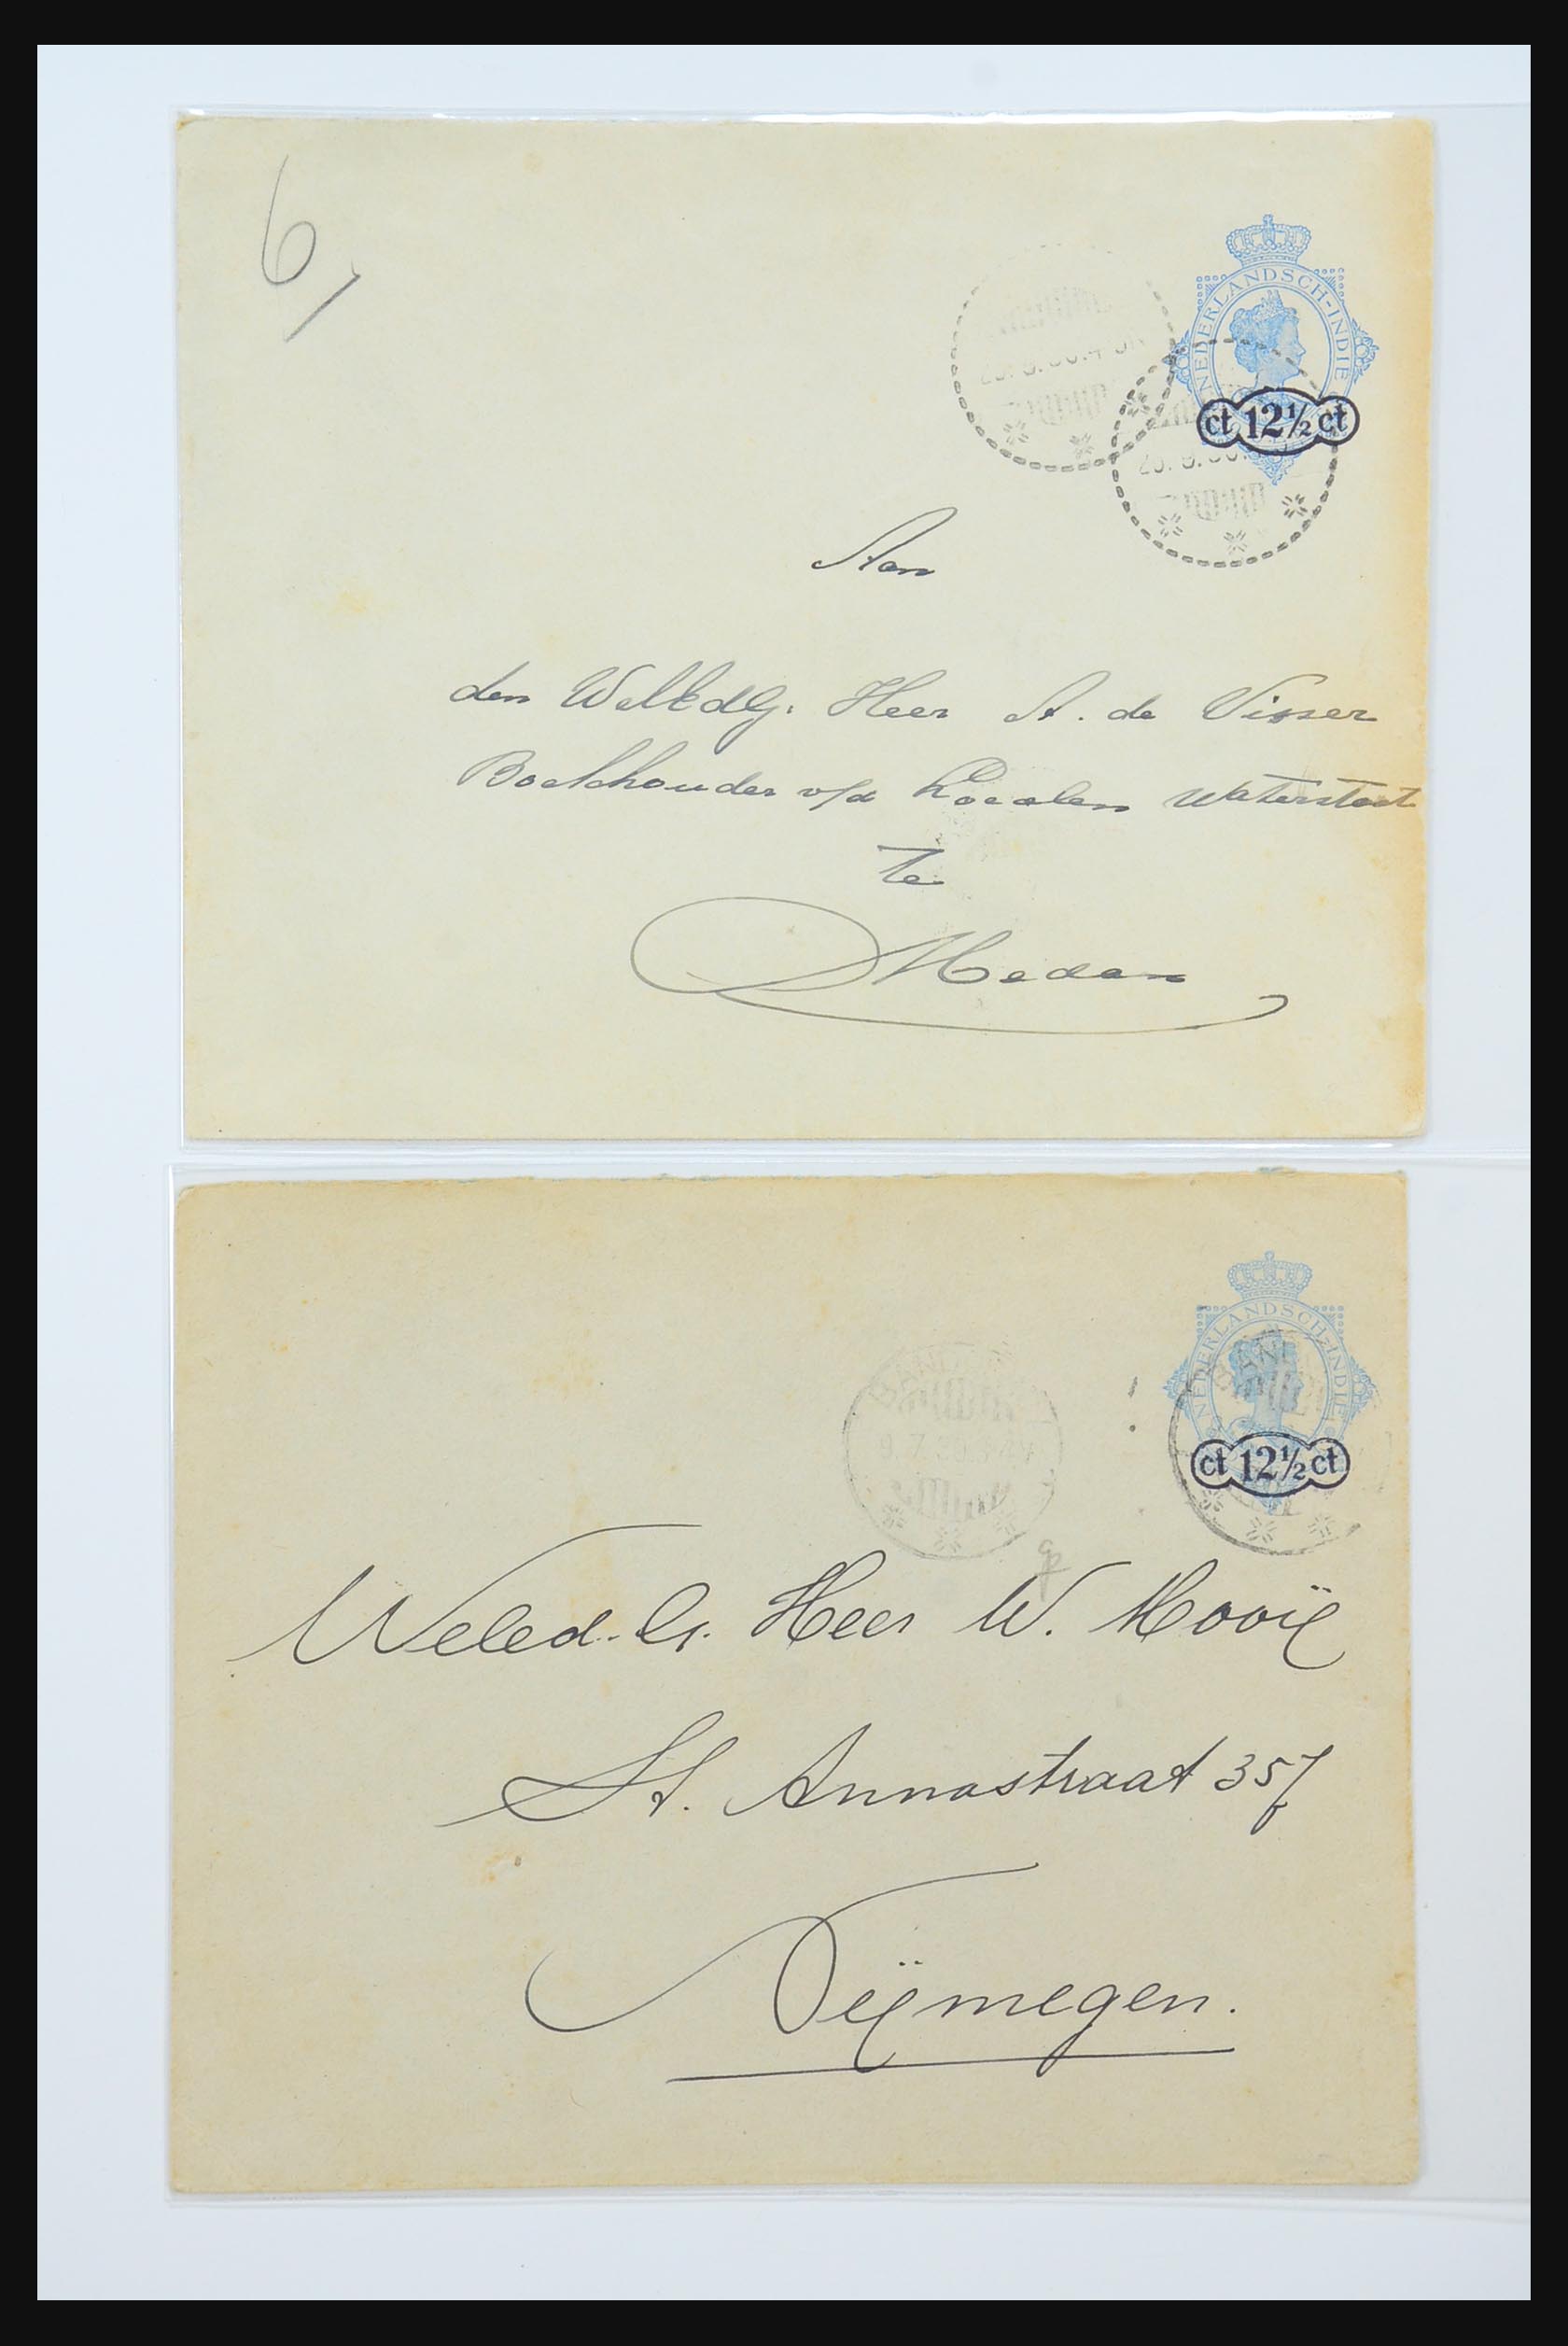 6/
NEDERLANDSCH-INDIE
ct 12½ ct
Aan
den WelEdG. Heer A. de Visser
Boekhouder v/d Localen Waterstaat
te
Medan
NEDERLANDSCH-INDIE
ct 12½ ct
Weled. G. Heer W. Mooij
St. Annastraat 357
Nijmegen.